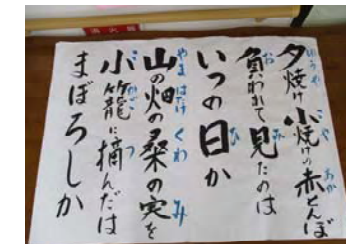 夕焼け小焼けの赤とんぼ
負われて見たのは
いつの日か
山の畑の桑の実を
小籠に摘んだは
まぼろしか